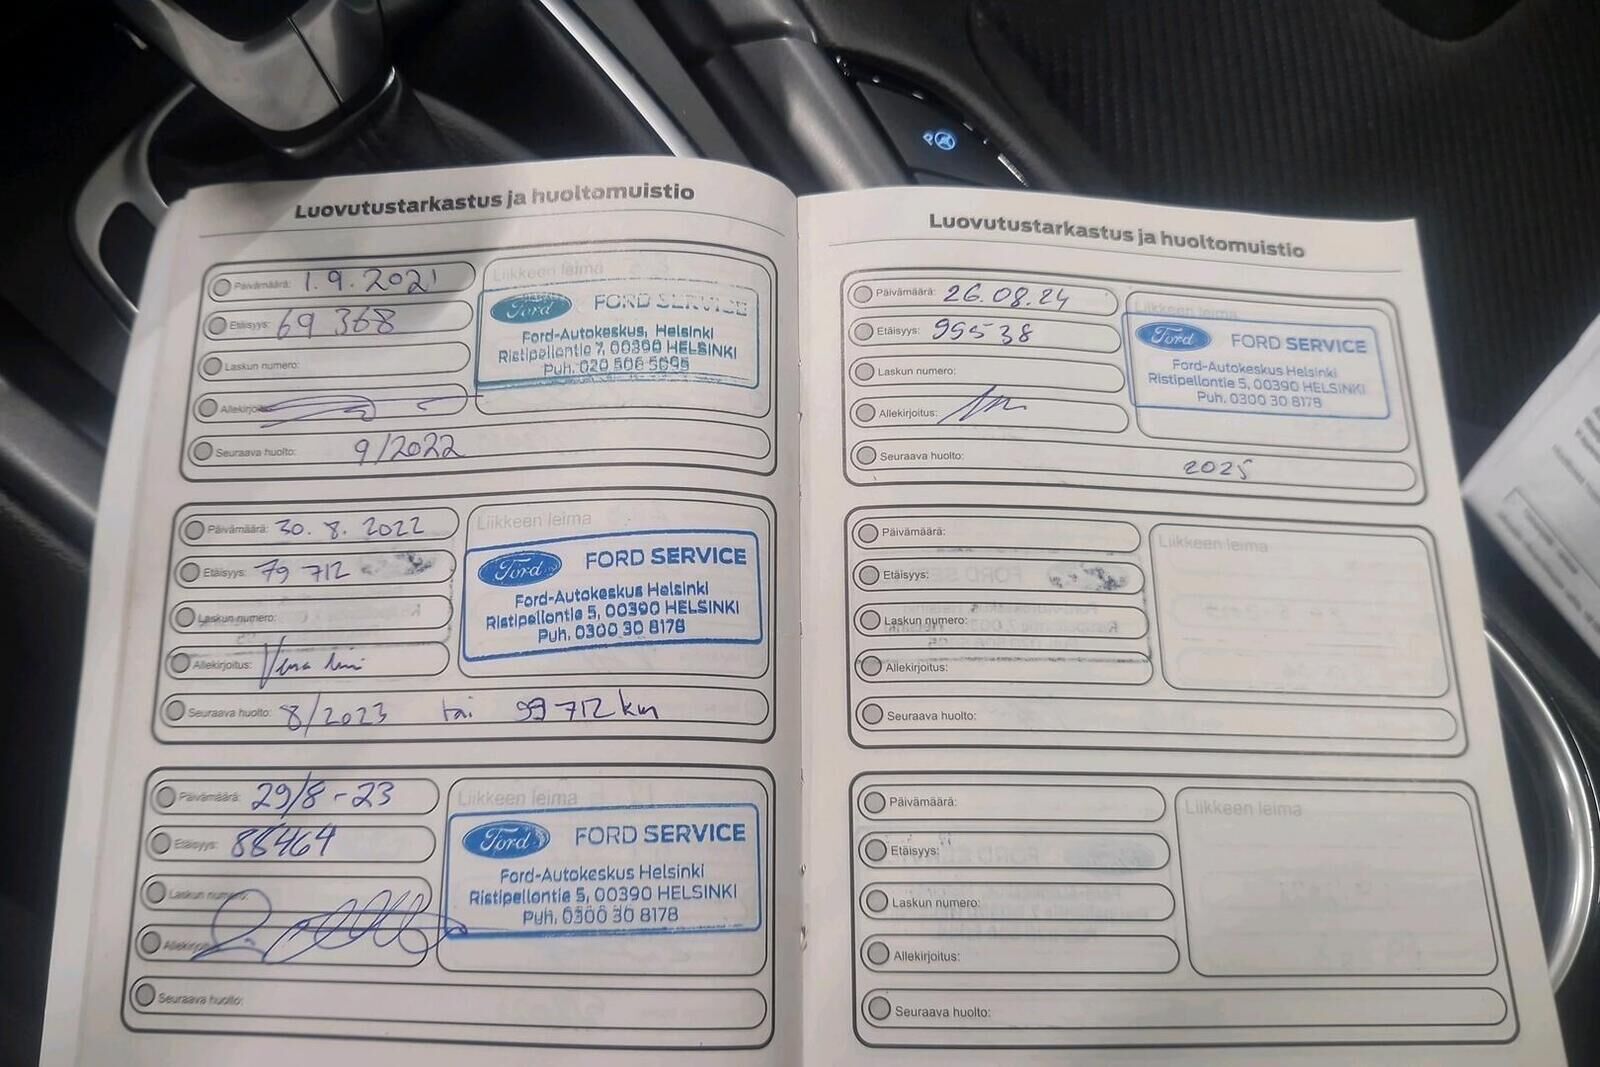 Luovutustarkastus ja huoltomuistio
Päivämäärä: 1.9.2021
Etäisyys: 69 368
Laskun numero:
Allekirjoitus:
Seuraava huolto: 9/2022
Liikkeen leima
Ford FORD SERVICE
Ford-Autokeskus, Helsinki
Ristipellontie 7, 00390 HELSINKI
Puh. 020 506 5695
Päivämäärä: 30.8.2022
Etäisyys: 79 712
Laskun numero:
Allekirjoitus:
Seuraava huolto: 8/2023 tai 99 712 km
Liikkeen leima
Ford FORD SERVICE
Ford-Autokeskus Helsinki
Ristipellontie 5, 00390 HELSINKI
Puh. 0300 30 8178
Päivämäärä: 29/8-23
Etäisyys: 88464
Laskun numero:
Allekirjoitus:
Seuraava huolto:
Liikkeen leima
Ford FORD SERVICE
Ford-Autokeskus Helsinki
Ristipellontie 5, 00390 HELSINKI
Puh. 0300 30 8178
Luovutustarkastus ja huoltomuistio
Päivämäärä: 26.08.24
Etäisyys: 99538
Laskun numero:
Allekirjoitus:
Seuraava huolto: 2025
Liikkeen leima
Ford FORD SERVICE
Ford-Autokeskus Helsinki
Ristipellontie 5, 00390 HELSINKI
Puh. 0300 30 8178
Päivämäärä:
Etäisyys:
Laskun numero:
Allekirjoitus:
Seuraava huolto:
Liikkeen leima
Päivämäärä:
Etäisyys:
Laskun numero:
Allekirjoitus:
Seuraava huolto:
Liikkeen leima